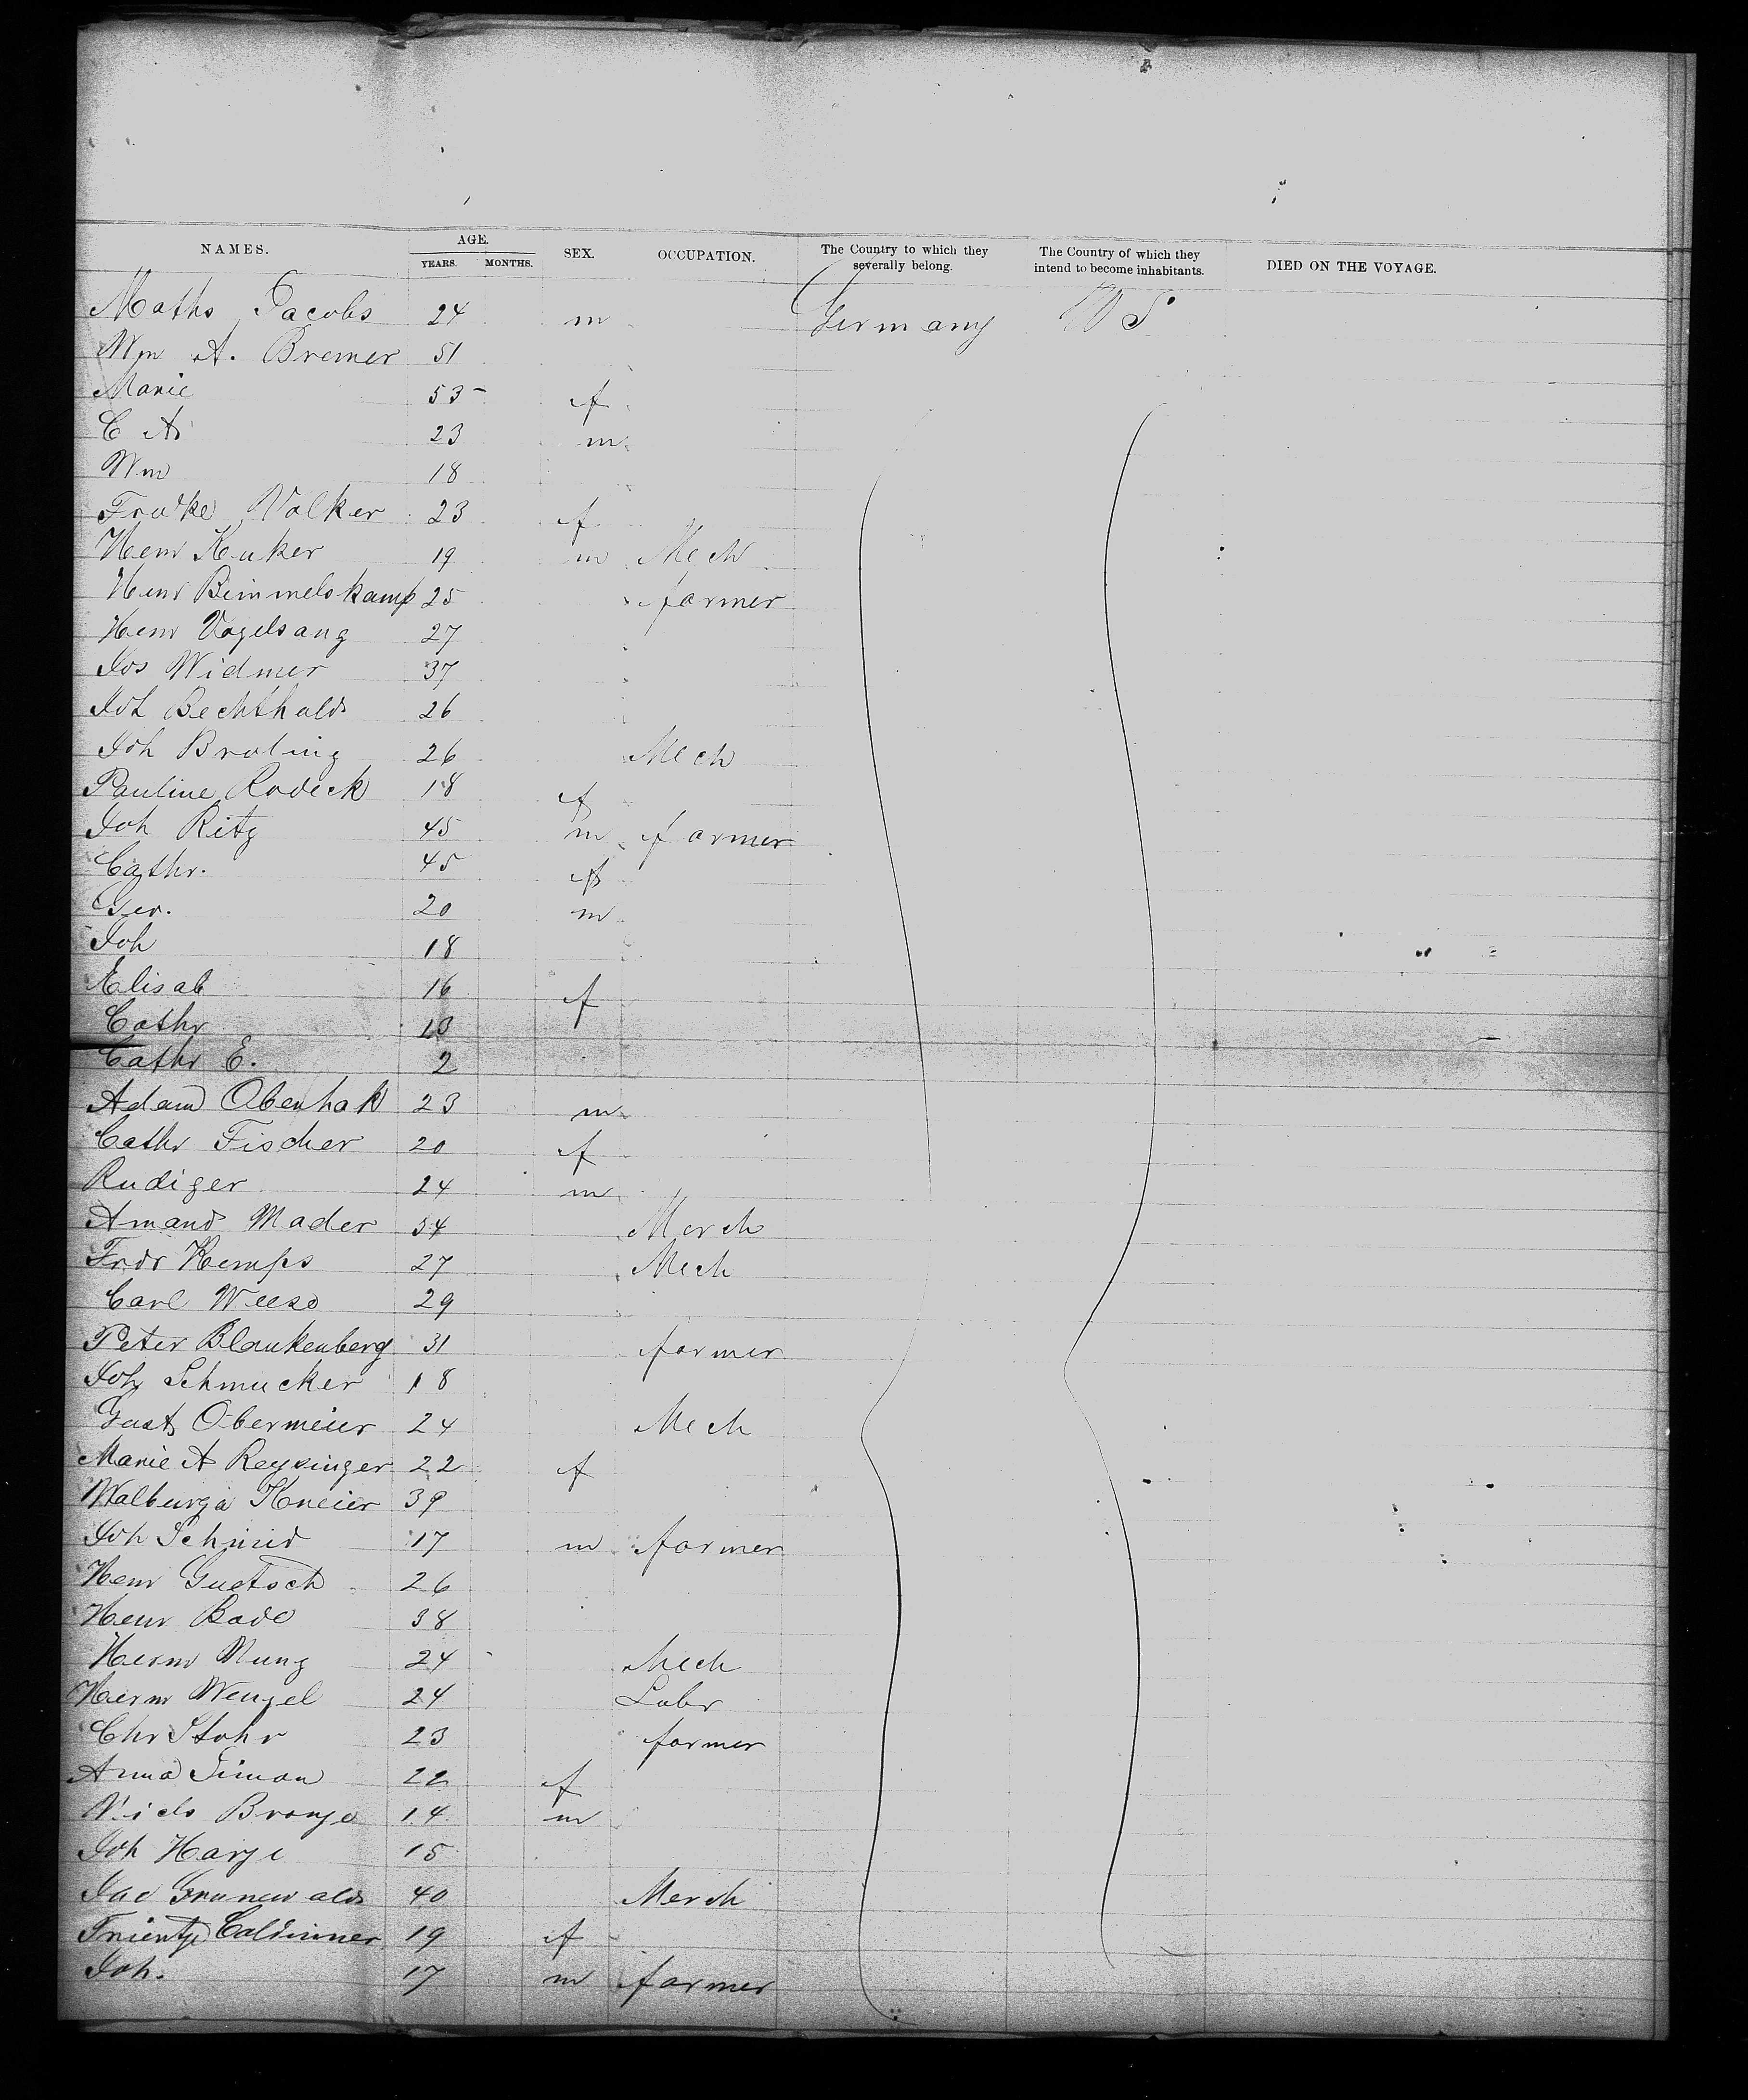 NAMES. AGE. SEX. OCCUPATION. The Country to which they severally belong. The Country of which they intend to become inhabitants. DIED ON THE VOYAGE.
YEARS. MONTHS.
Maths Jacobs 24 m Germany U S
Wm A. Bremer 51
Marie 53 f
C A 23 m
Wm 18
Frauke Volker 23 f
Henr Kuker 19 m Mech
Henr Bimmelskamp 25 farmer
Henr Vogelsang 27
Jos Widmer 37
Joh Bechthold 26
Joh Broling 26 Mech
Pauline Rodeck 18 f
Joh Ritz 45 m farmer
Cathr. 45 f
Geo. 20 m
Joh 18
Elisab 16 f
Cathr 13
Cathr E. 2
Adam Obenhak 23 m
Cathr Fischer 20 f
Rudiger 24 m
Amand Mader 34 Merch
Fredr Kemps 27 Mech
Carl Weeso 29
Peter Blankenberg 31 farmer
Joh Schmucker 18
Gust Obermeier 24 Mech
Marie A Reysinger 22 f
Walburga Kneier 39
Joh Schmid 17 m farmer
Henr Guetsch 26
Henr Bade 38
Herm Mung 24 Mech
Herm Wenzel 24 Labr
Chr Stohr 23 farmer
Anna Simon 22 f
Bronje 14 m
Joh Harje 15
Jac Grunewald 40 Merch
Trientje 19 f
Joh. 17 m farmer